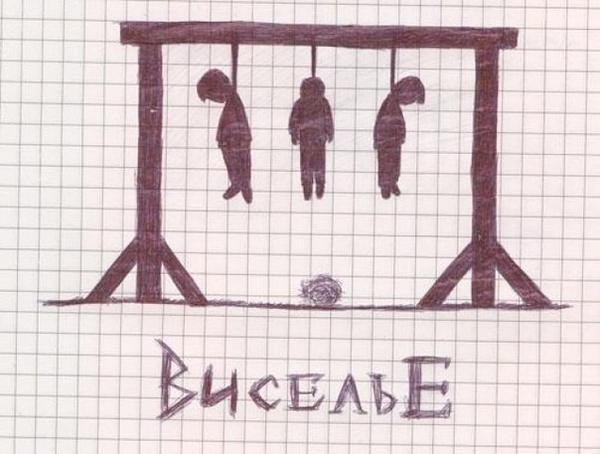 ВисЕлЬЕ